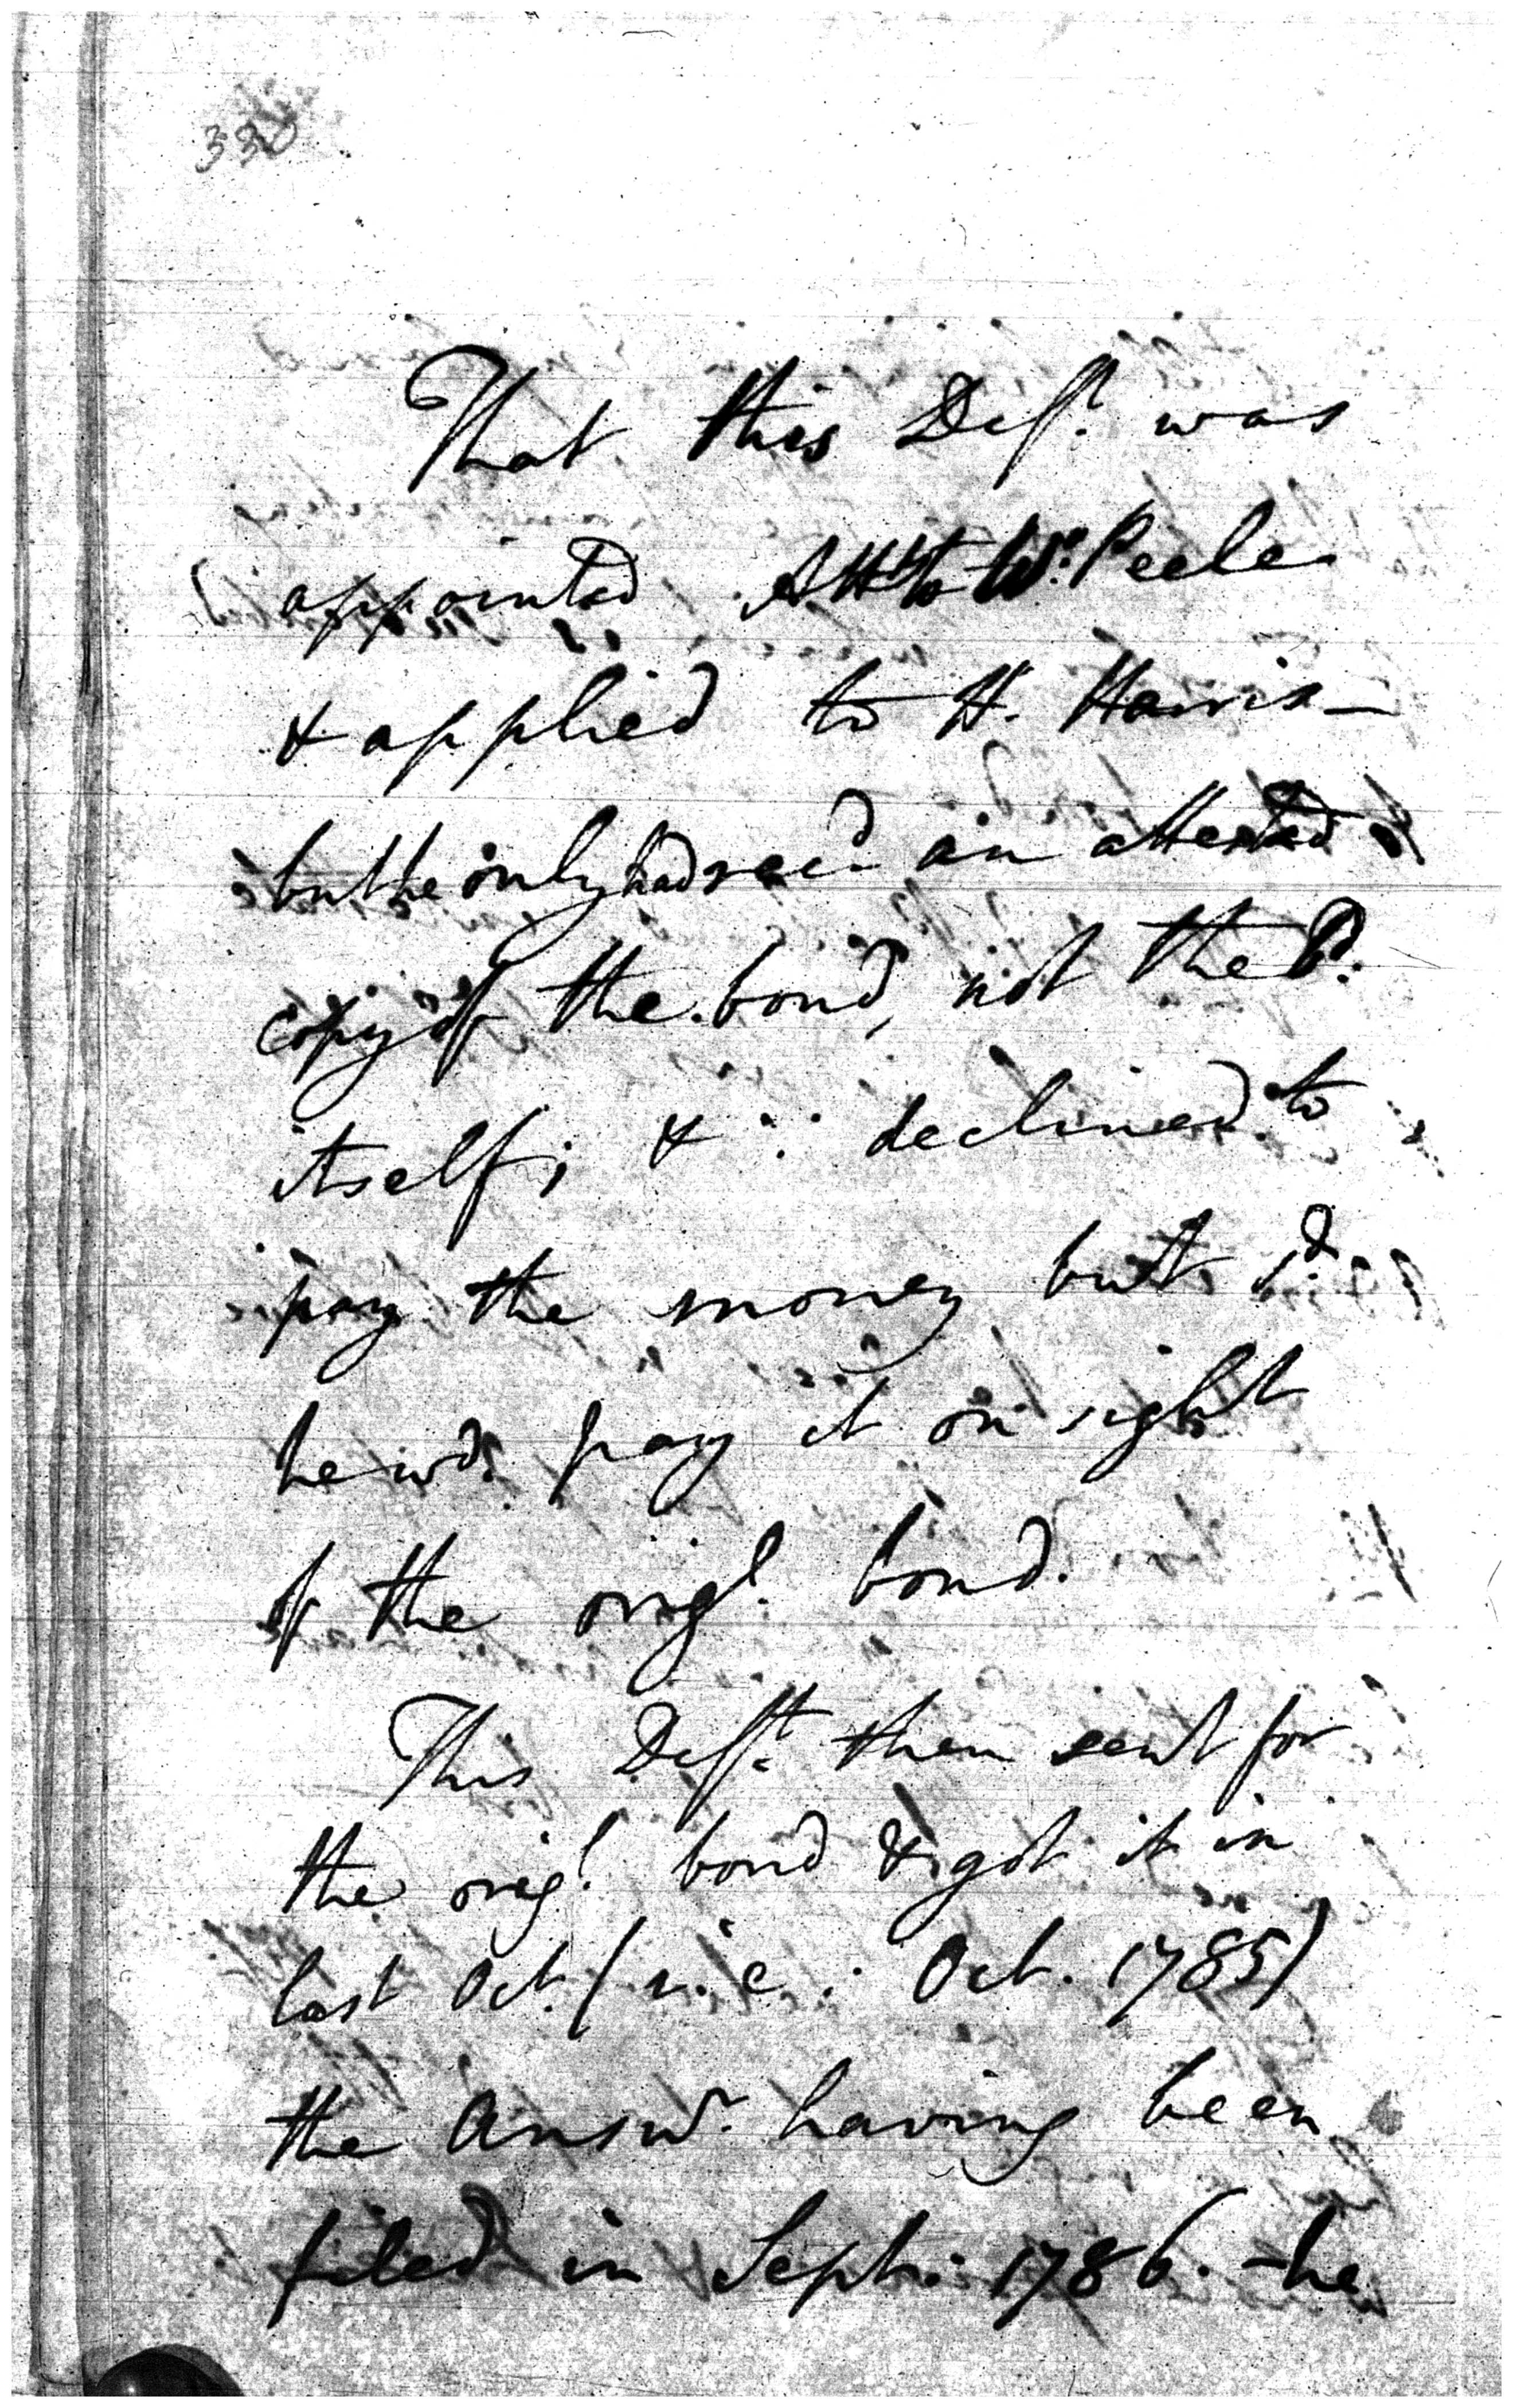 330
That this Deft. was
appointed Atty to Wm. Peele
& applied to H. Harris –
but he only had recd. an attested
copy of the bond, not the B.
itself; & ∵ declined to
pay the money but sd.
he wd. pay it on sight
of the origl. bond.
This Deft. then sent for
the origl. bond & got it in
last Oct. (i.e. : Oct. 1785)
the Answr. having been
filed in Septr. 1786. – he